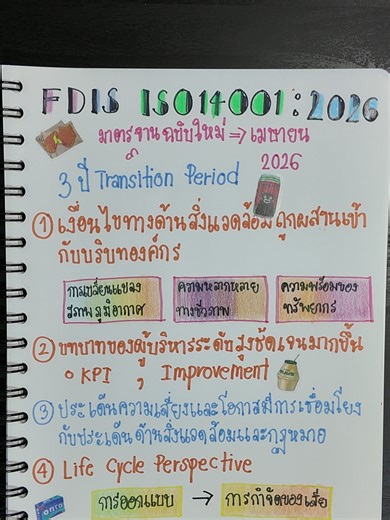 FDIS ISO14001:2026
มาตรฐานฉบับใหม่ ⇒ เมษายน
2026
3 ปี Transition Period
① เงื่อนไขทางด้านสิ่งแวดล้อมถูกผสานเข้า
กับบริบทองค์กร
การเปลี่ยนแปลง
สภาพภูมิอากาศ
ความหลากหลาย
ทางชีวภาพ
ความพร้อมของ
ทรัพยากร
② บทบาทของผู้บริหารระดับสูงชัดเจนมากขึ้น
∘ KPI , Improvement
③ ประเด็นความเสี่ยงและโอกาสมีการเชื่อมโยง
กับประเด็นด้านสิ่งแวดล้อมและกฎหมาย
④ Life Cycle Perspective
การออกแบบ → การกำจัดของเสีย